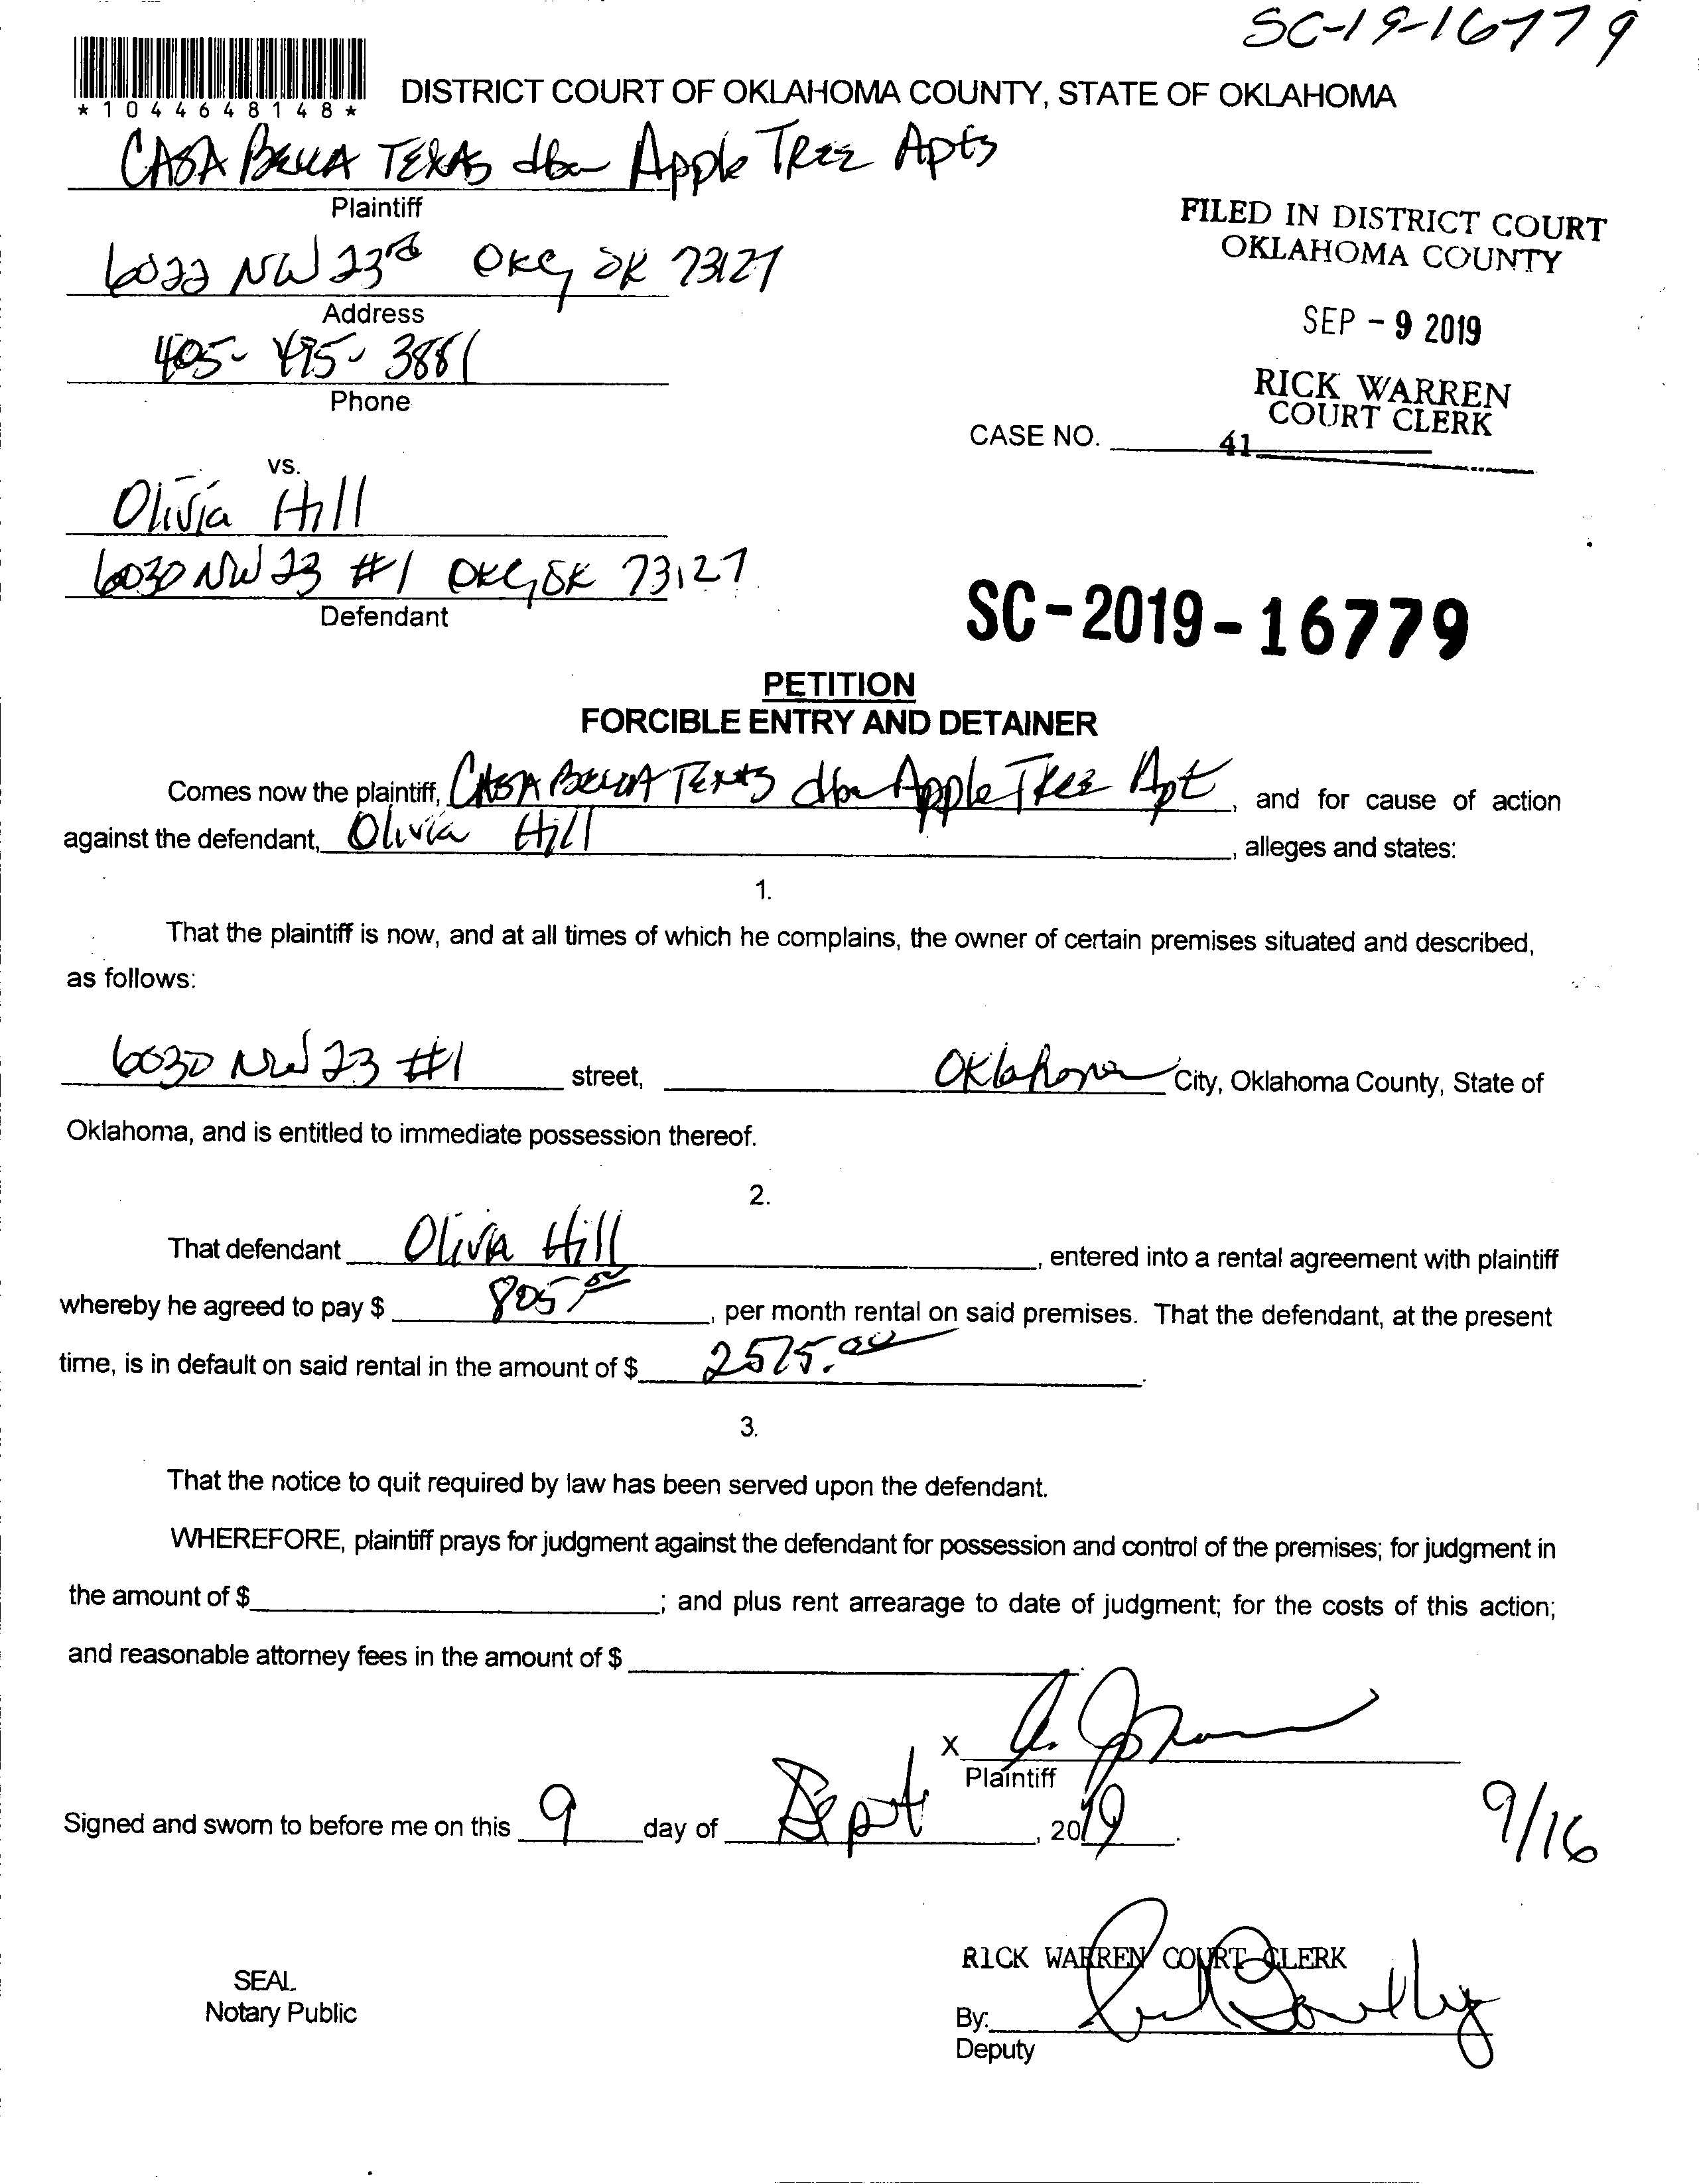 SC-19-16779
*1044648148*
DISTRICT COURT OF OKLAHOMA COUNTY, STATE OF OKLAHOMA
CASA BELLA TEXAS dba Apple TREE Apts
Plaintiff
6022 NW 23rd OKC, OK 73127
Address
405-495-3881
Phone
FILED IN DISTRICT COURT
OKLAHOMA COUNTY
SEP - 9 2019
RICK WARREN
COURT CLERK
CASE NO. 41
vs.
Olivia Hill
6030 NW 23 #1 OKC, OK 73127
Defendant
SC-2019-16779
PETITION
FORCIBLE ENTRY AND DETAINER
Comes now the plaintiff, CASA BELLA TEXAS dba Apple TREE Apt, and for cause of action
against the defendant, Olivia Hill, alleges and states:
1.
That the plaintiff is now, and at all times of which he complains, the owner of certain premises situated and described,
as follows:
6030 NW 23 #1 street, Oklahoma City, Oklahoma County, State of
Oklahoma, and is entitled to immediate possession thereof.
2.
That defendant Olivia Hill, entered into a rental agreement with plaintiff
whereby he agreed to pay $ 805.00, per month rental on said premises. That the defendant, at the present
time, is in default on said rental in the amount of $ 2575.00.
3.
That the notice to quit required by law has been served upon the defendant.
WHEREFORE, plaintiff prays for judgment against the defendant for possession and control of the premises; for judgment in
the amount of $ ; and plus rent arrearage to date of judgment; for the costs of this action;
and reasonable attorney fees in the amount of $ .
X
Plaintiff
Signed and sworn to before me on this 9 day of Sept, 2019.
9/16
RICK WARREN COURT CLERK
SEAL
Notary Public
By:
Deputy